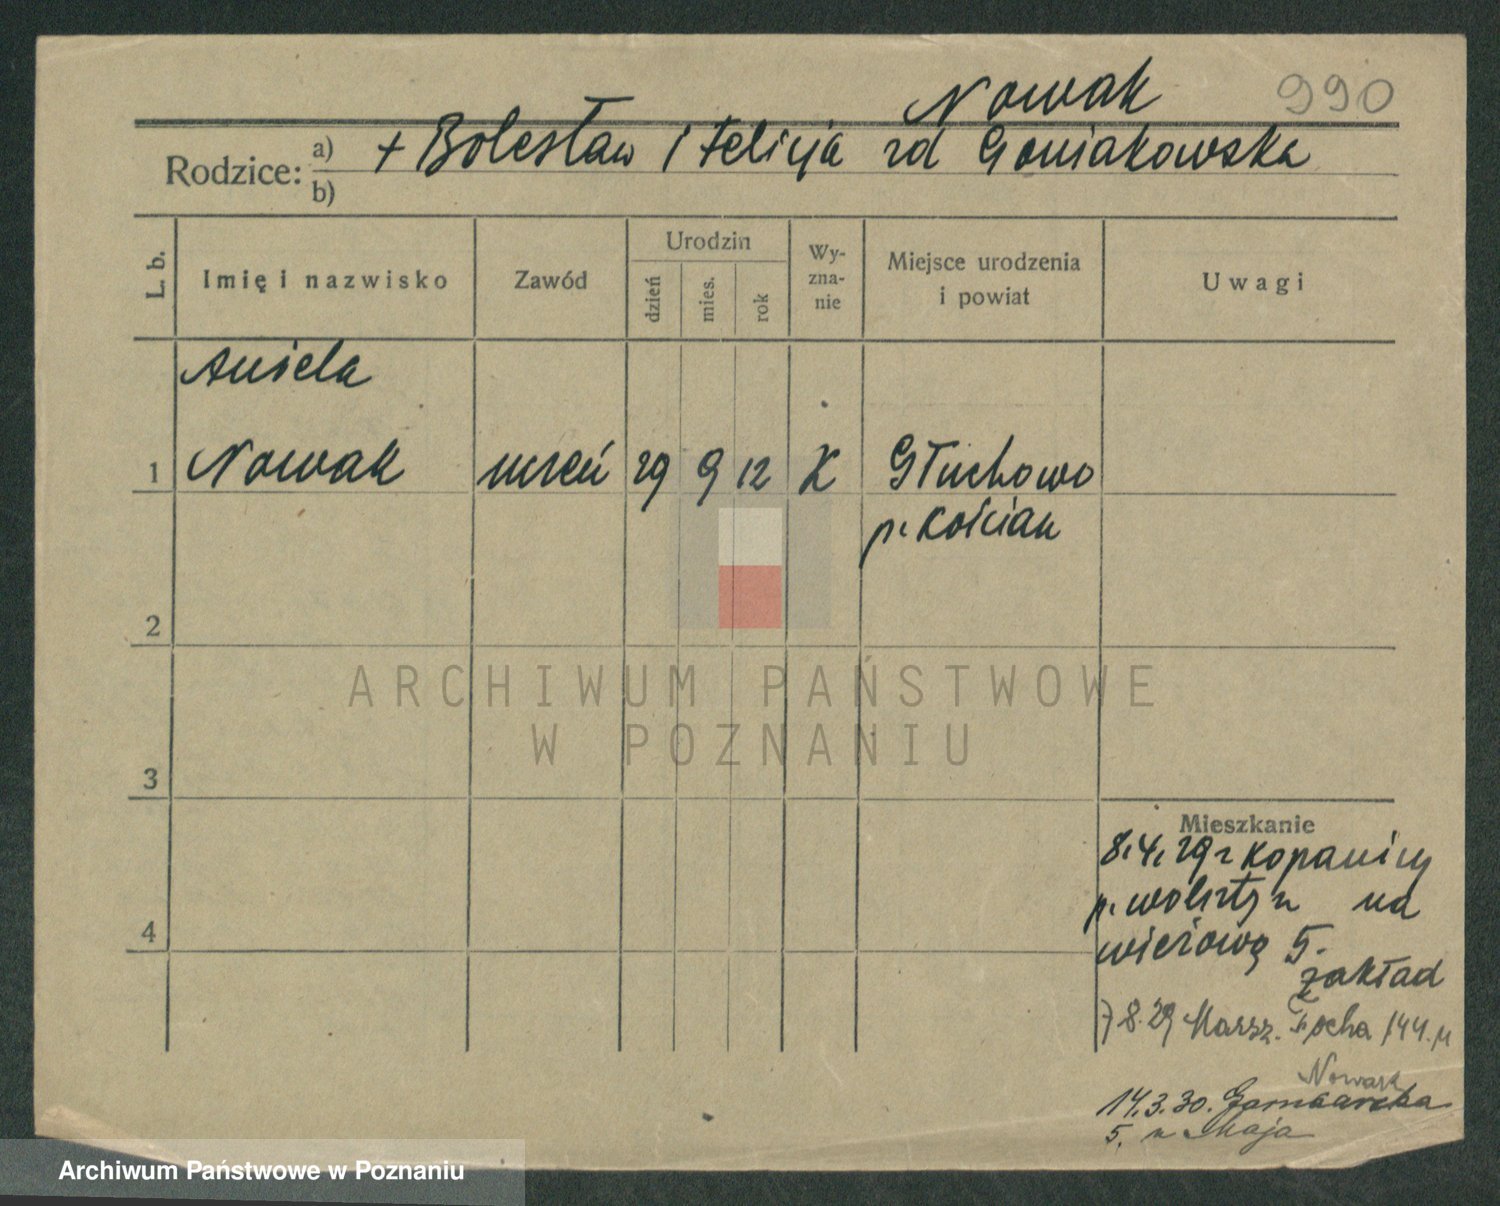 Nowak 990
Rodzice: a) + Bolesław i Felicja zd Goniakowska
b)
L. b.
Imię i nazwisko
Zawód
Urodzin
dzień
mies.
rok
Wy-
zna-
nie
Miejsce urodzenia
i powiat
Uwagi
Aniela
1 Nowak uczeń 29 9 12 K Głuchowo
p. Kościan
2
ARCHIWUM PAŃSTWOWE
W POZNANIU
3
Mieszkanie
8.4.29 z Kopanicy
p. Wolsztyn na
4
Wieżową 5.
zakład
7 8.29 Marsz. Focha 144.
Nowak
14.3.30. Garncarska
5. u Maja
Archiwum Państwowe w Poznaniu